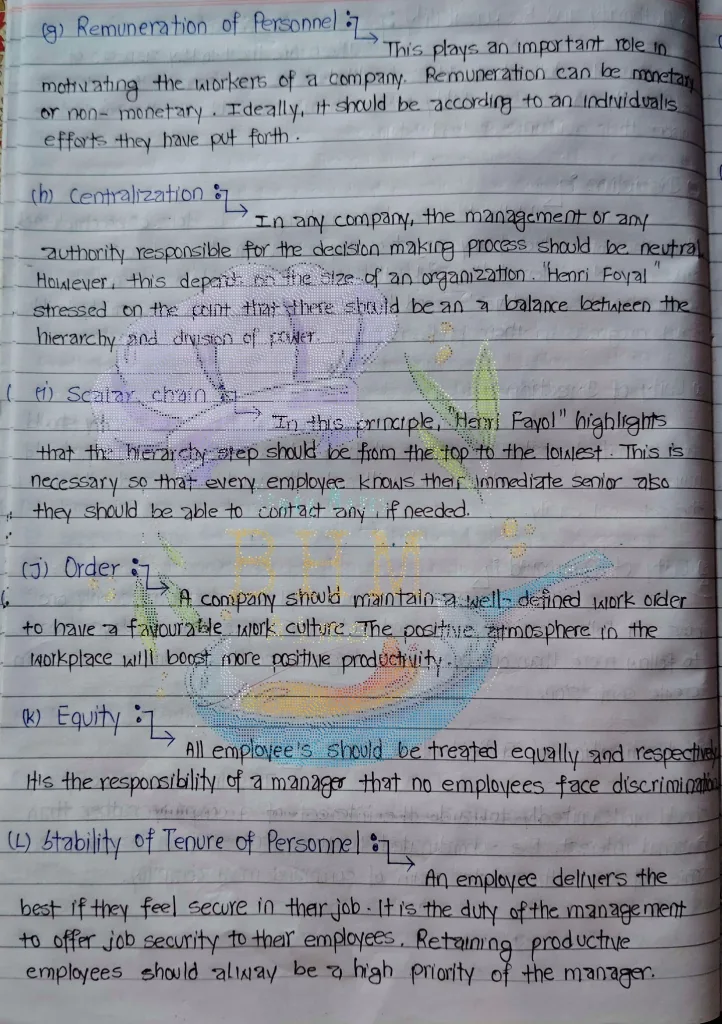 (g) Remuneration of Personnel :-
This plays an important role in
motivating the workers of a company. Remuneration can be monetary
or non-monetary. Ideally, it should be according to an individualis
efforts they have put forth.
(h) Centralization :-
In any company, the management or any
authority responsible for the decision making process should be neutral
However, this depends on the size of an organization. "Henri Foyal"
stressed on the point that there should be an a balance between the
hierarchy and division of power.
(i) Scalar chain :-
In this principle, "Henri Fayol" highlights
that the hierarchy step should be from the top to the lowest. This is
necessary so that every employee knows their immediate senior also
they should be able to contact any, if needed.
BHM
(J) Order :-
A company should maintain a well-defined work order
to have a favourable work culture. The positive atmosphere in the
workplace will boost more positive productivity.
(K) Equity :-
All employee's should be treated equally and respectively
It is the responsibility of a manager that no employees face discrimination
(L) Stability of Tenure of Personnel :-
An employee delivers the
best if they feel secure in their job. It is the duty of the management
to offer job security to their employees. Retaining productive
employees should alway be a high priority of the manager.